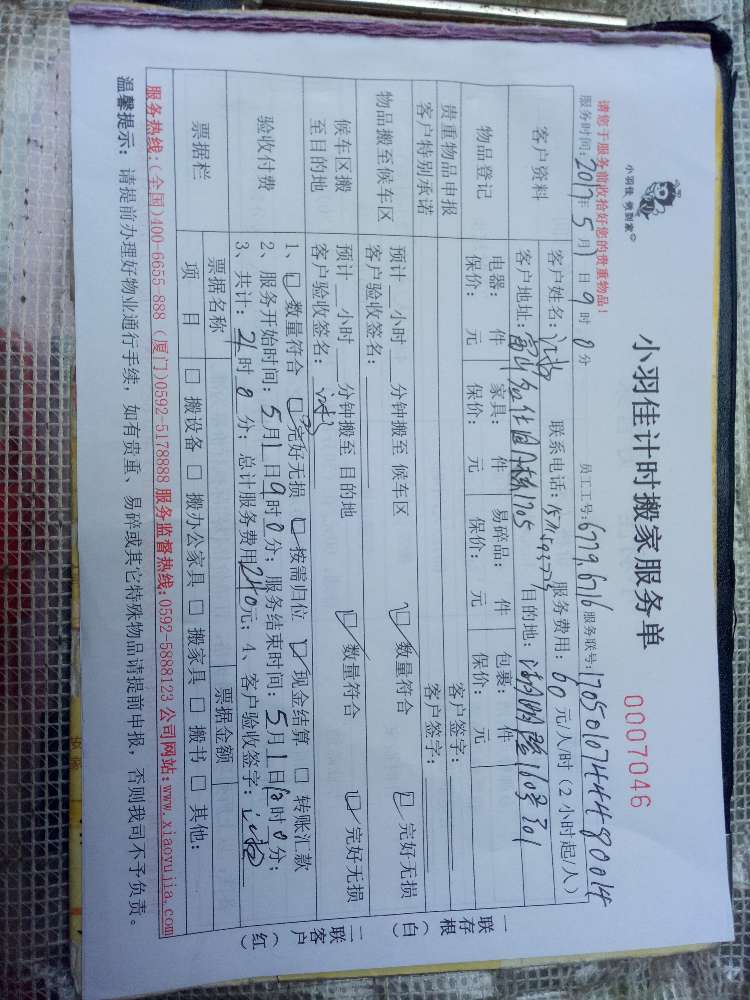 小羽佳 您到家
小羽佳计时搬家服务单
0007046
请您于服务前收拾好您的贵重物品!
服务时间:2017年5月1日9时0分 员工工号:6779,6716 服务联号:17050107444480014
客户资料 客户姓名: 联系电话: 服务费用:60元/人/时(2小时起/人)
客户地址: 1705 目的地: 160号301
物品登记 电器: 件 家具: 件 易碎品: 件 包裹: 件
保价: 元 保价: 元 保价: 元 保价: 元
贵重物品申报 客户签字:
客户特别承诺 客户签字:
物品搬至候车区 预计 小时 分钟搬至 候车区 ☑数量符合 ☑完好无损
客户验收签名:
候车区搬至目的地 预计 小时 分钟搬至 目的地 ☑数量符合 ☑完好无损
客户验收签名:
验收付费 1、☑数量符合 ☑完好无损 ☑按需归位 ☑现金结算 □转账汇款
2、服务开始时间:5月1日9时0分;服务结束时间:5月1日 时0分;
3、共计: 时0分;总计服务费用240元;4、客户验收签字:
票据栏 票据名称 票据金额
项目 □搬设备 □搬办公家具 □搬家具 □搬书 □其他:
一联存根(白) 二联客户(红)
服务热线:(全国)400-6655-888 (厦门)0592-5178888 服务监督热线:0592-5888123 公司网站:www.xiaoyujia.com
温馨提示:请提前办理好物业通行手续,如有贵重、易碎或其它特殊物品请提前申报,否则我司不予负责。